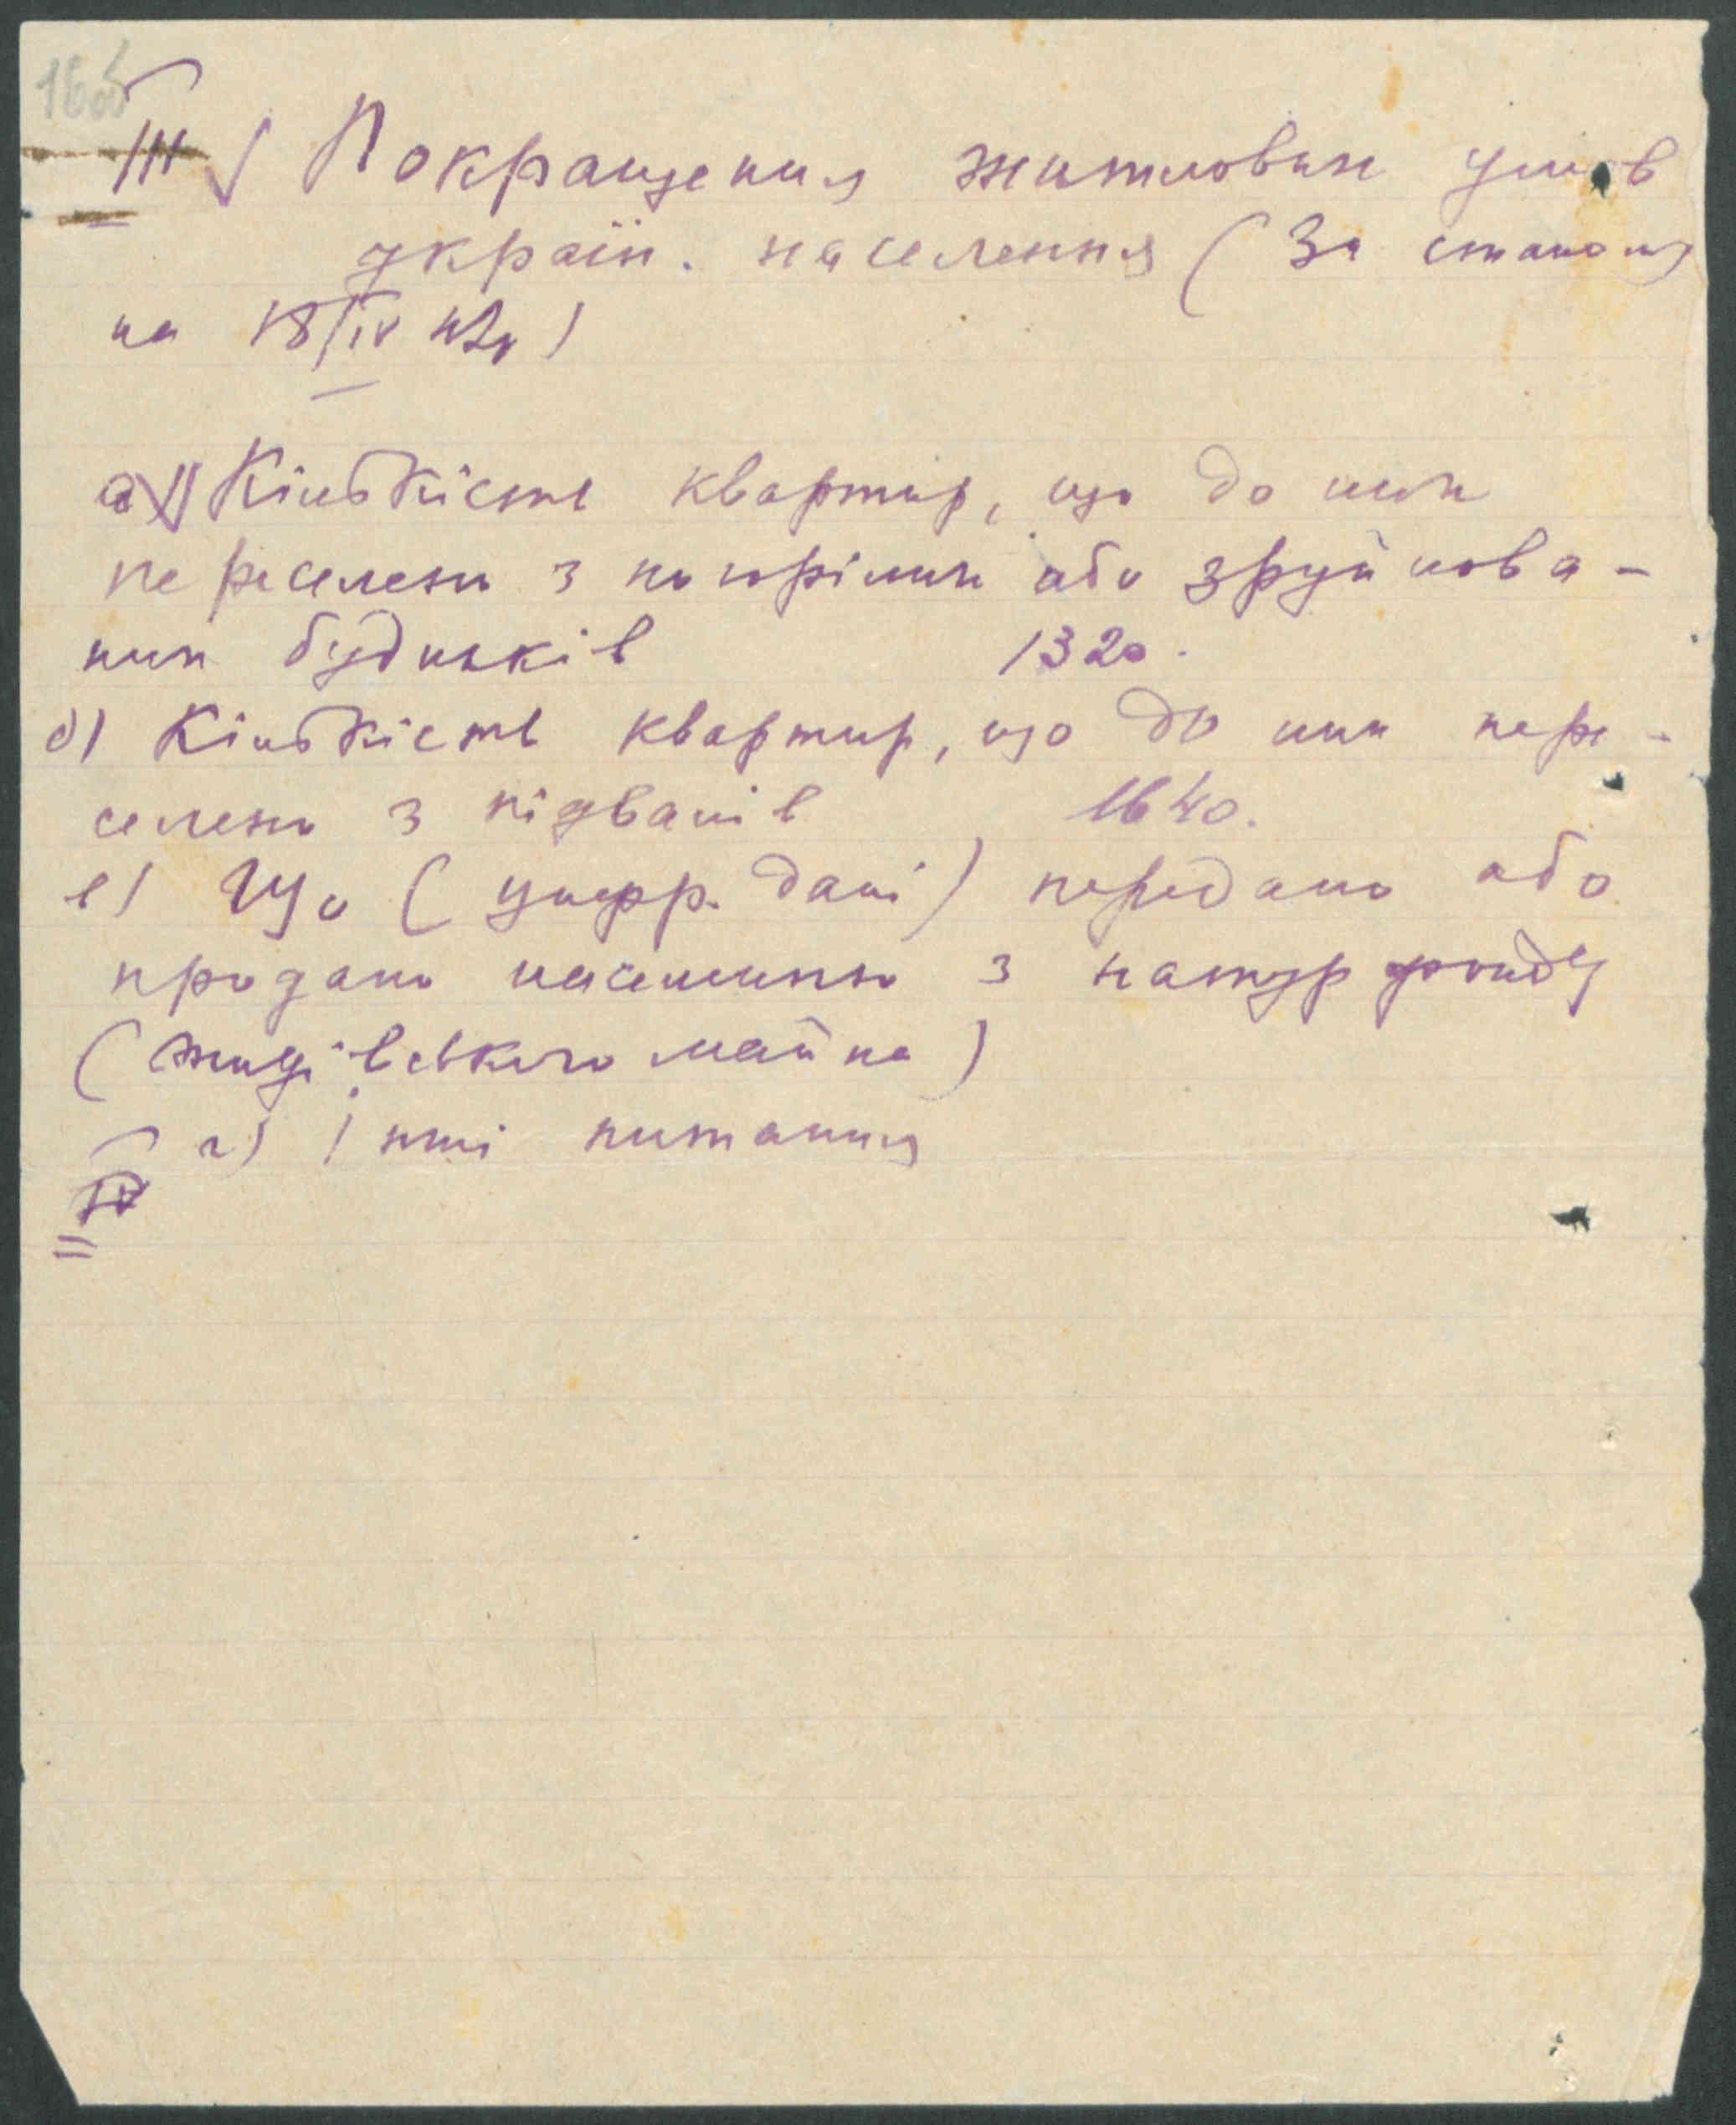 16об
III) Покращення житлових умов
україн. населення (За станом
на 18/IV 42р)
а) Кількість квартир, що до них
переселено з погорілих або зруйнова-
них будинків 1320.
б) Кількість квартир, що до них пере-
селено з підвалів 1640.
в) Що (цифр. дані) передано або
продано населенню з натурфонду
(жидівського майна)
г) Інші питання
IV